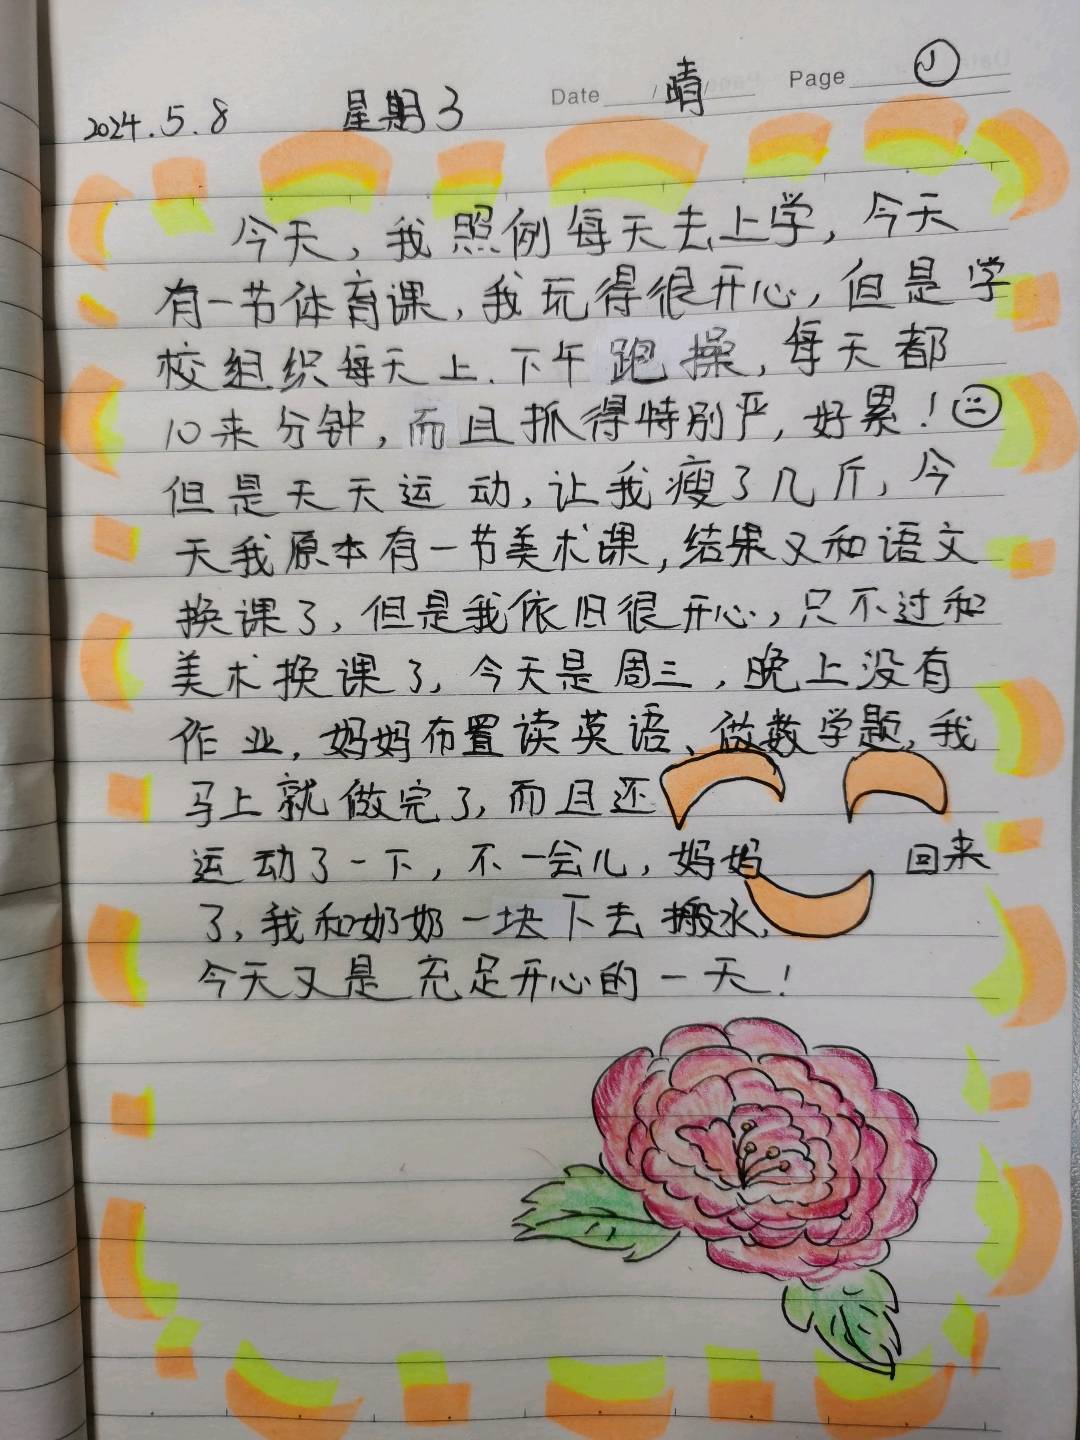 2024.5.8 星期3 Date / 晴 / Page 1
今天，我照例每天去上学，今天
有一节体育课，我玩得很开心，但是学
校组织每天上、下午跑操，每天都
10来分钟，而且抓得特别严，好累！
但是天天运动，让我瘦了几斤，今
天我原本有一节美术课，结果又和语文
换课了，但是我依旧很开心，只不过和
美术换课了，今天是周三，晚上没有
作业，妈妈布置读英语、做数学题，我
马上就做完了，而且还
运动了一下，不一会儿，妈妈回来
了，我和奶奶一块下去搬水，
今天又是充足开心的一天！